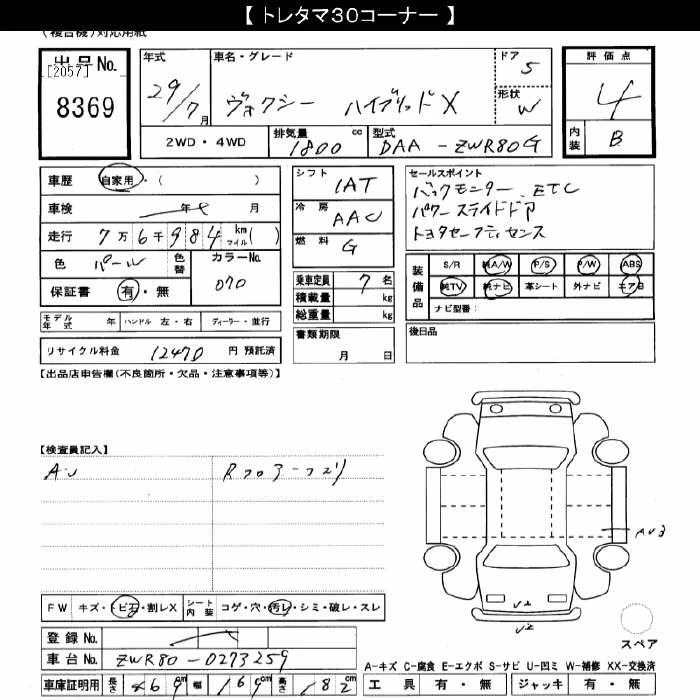 【 トレタマ30コーナー 】
(複合機)対応用紙
出品No.
[2057]
8369
年式
29/7月
車名・グレード
ヴォクシー ハイブリッドX
ドア
5
形状
W
評価点
4
内装
B
2WD・4WD
排気量
1800 cc
型式
DAA-ZWR80G
車歴 自家用・( )
車検 年 月
走行 7万6千984 km マイル( )
色 パール 色替
カラーNo.
070
保証書 有・無
シフト
IAT
冷房
AAC
燃料
G
乗車定員 7 名
積載量 kg
総重量 kg
セールスポイント
バックモニター、ETC
パワースライドドア
トヨタセーフティセンス
装備品
S/R 純A/W P/S P/W ABS
純TV 純ナビ 革シート 外ナビ エアB
ナビ型番:
モデル年式 年 ハンドル 左・右 ディーラー・並行
書類期限
月 日
後日品
リサイクル料金 12470 円 預託済
【出品店申告欄(不良箇所・欠品・注意事項等)】
【検査員記入】
Rフロアーつブリ
AU3
U2
FW キズ・トビ石・割レX
シート内装 コゲ・穴・汚レ・シミ・破レ・スレ
スペア
登録No.
車台No. ZWR80-0273259
A-キズ C-腐食 E-エクボ S-サビ U-凹ミ W-補修 XX-交換済
車庫証明用 長さ 469cm 幅 169cm 高さ 182cm
工具 有・無 ジャッキ 有・無